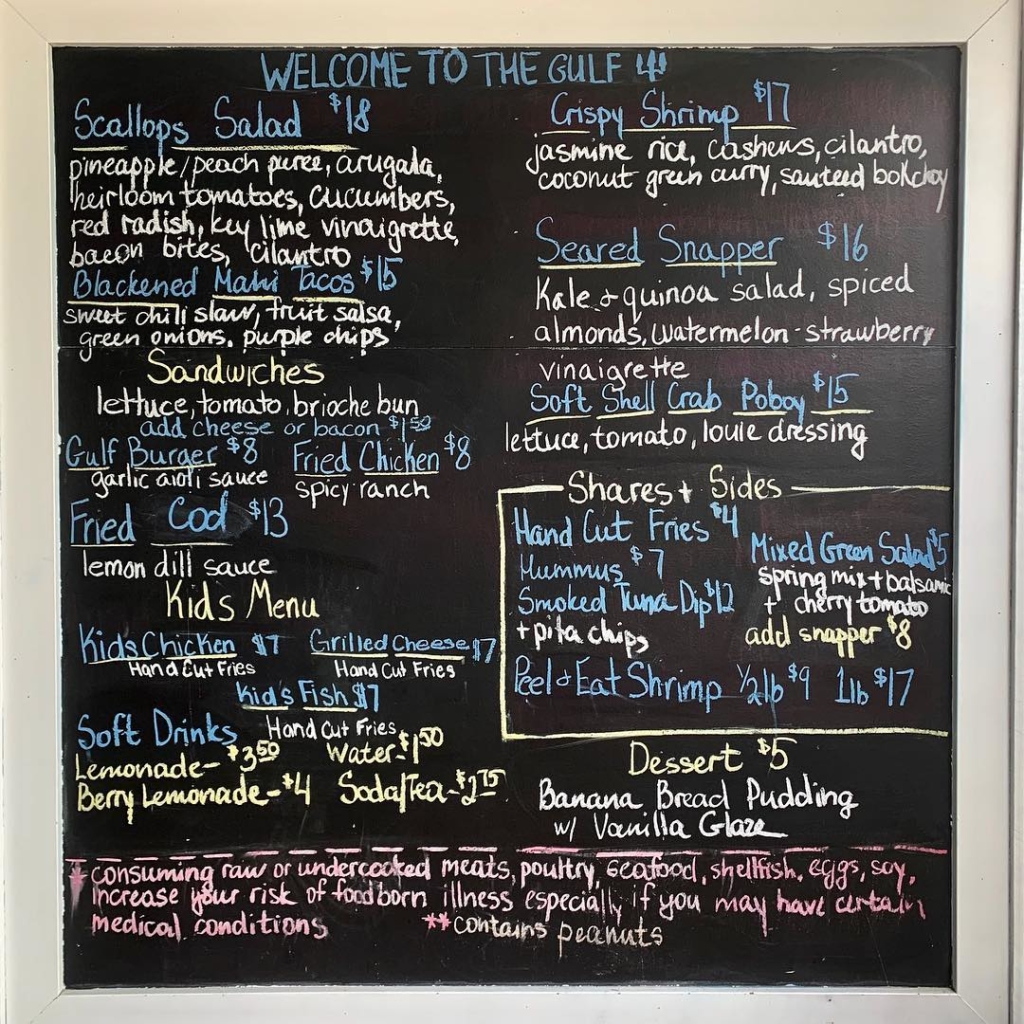 WELCOME TO THE GULF
Scallops Salad $18
pineapple/peach puree, arugala,
heirloom tomatoes, cucumbers,
red radish, key lime vinaigrette,
bacon bites, cilantro
Blackened Mahi Tacos $15
sweet chili slaw, fruit salsa,
green onions, purple chips
Sandwiches
lettuce, tomato, brioche bun
add cheese or bacon $1.50
Gulf Burger $8
garlic aioli sauce
Fried Chicken $8
spicy ranch
Fried Cod $13
lemon dill sauce
Kids Menu
Kids Chicken $7
Hand Cut Fries
Grilled Cheese $7
Hand Cut Fries
Kid's Fish $7
Hand Cut Fries
Soft Drinks
Lemonade - $3.50
Water - $1.50
Berry Lemonade - $4
Soda/Tea - $2.75
Crispy Shrimp $17
jasmine rice, cashews, cilantro,
coconut green curry, sauteed bokchoy
Seared Snapper $16
Kale & quinoa salad, spiced
almonds, watermelon-strawberry
vinaigrette
Soft Shell Crab Poboy $15
lettuce, tomato, louie dressing
Shares + Sides
Hand Cut Fries $4
Hummus $7
Smoked Tuna Dip $12
+ pita chips
Mixed Green Salad $5
spring mix + balsamic
+ cherry tomato
add snapper $8
Peel & Eat Shrimp 1/2 lb $9 1 lb $17
Dessert $5
Banana Bread Pudding
w/ Vanilla Glaze
* consuming raw or undercooked meats, poultry, seafood, shellfish, eggs, soy,
increase your risk of foodborn illness especially if you may have certain
medical conditions **contains peanuts